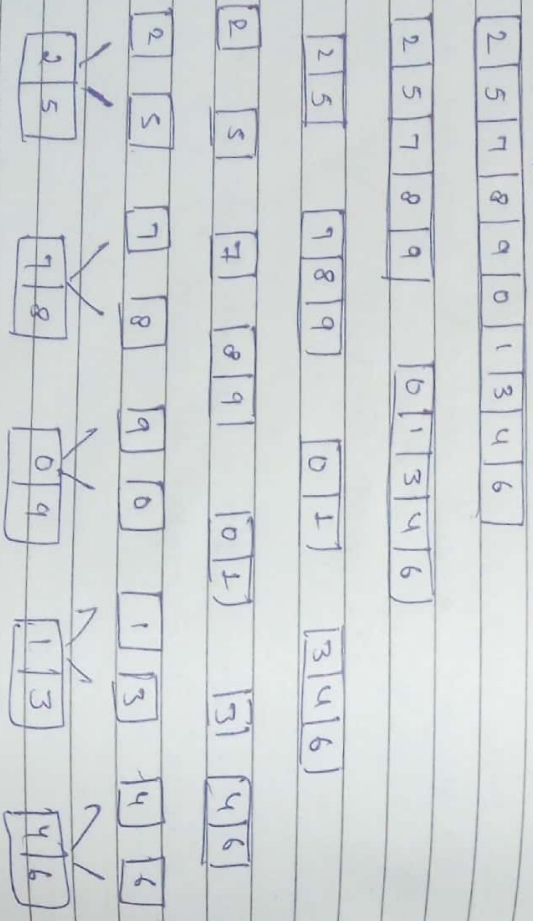 2 5 7 8 9 0 1 3 4 6
2 5 7 8 9 0 1 3 4 6
2 5 7 8 9 0 1 3 4 6
2 5 7 8 9 0 1 3 4 6
2 5 7 8 9 0 1 3 4 6
2 5 7 8 0 9 1 3 4 6